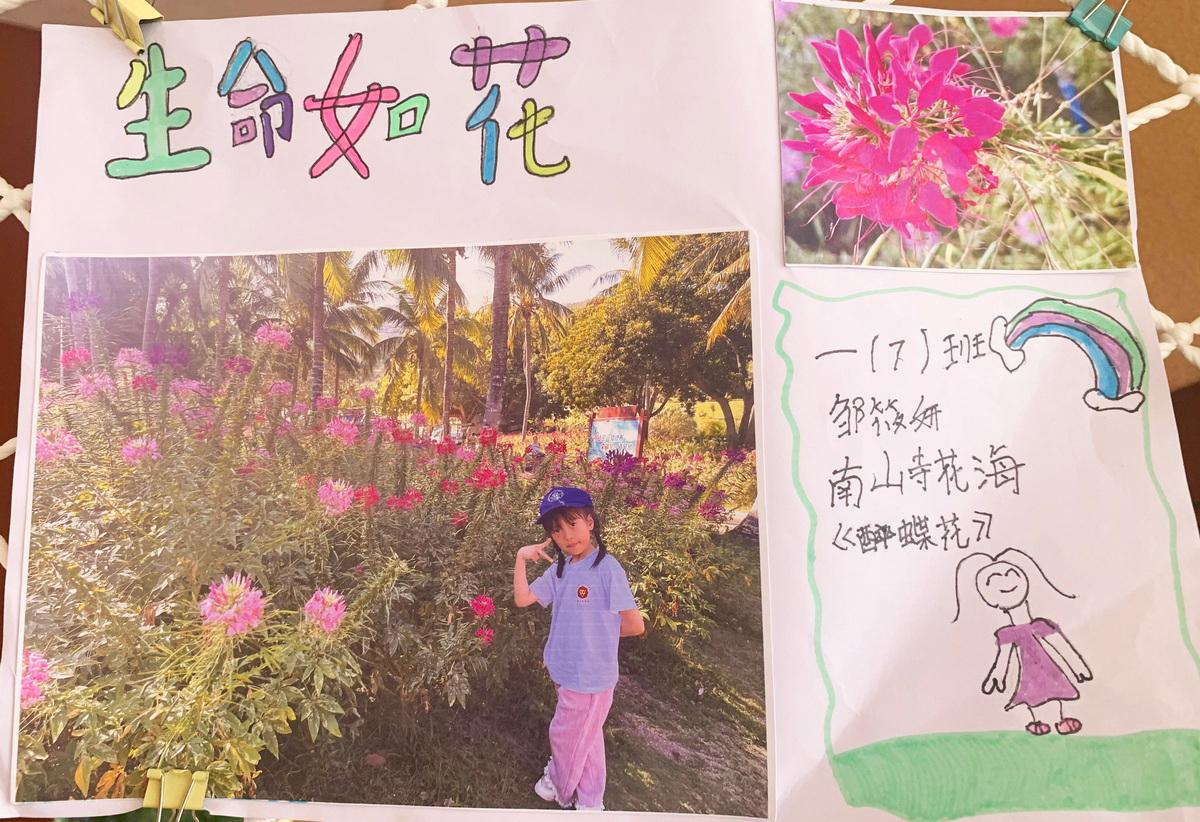 生命如花
一(7)班
邹筱妍
南山寺花海
《醉蝶花》